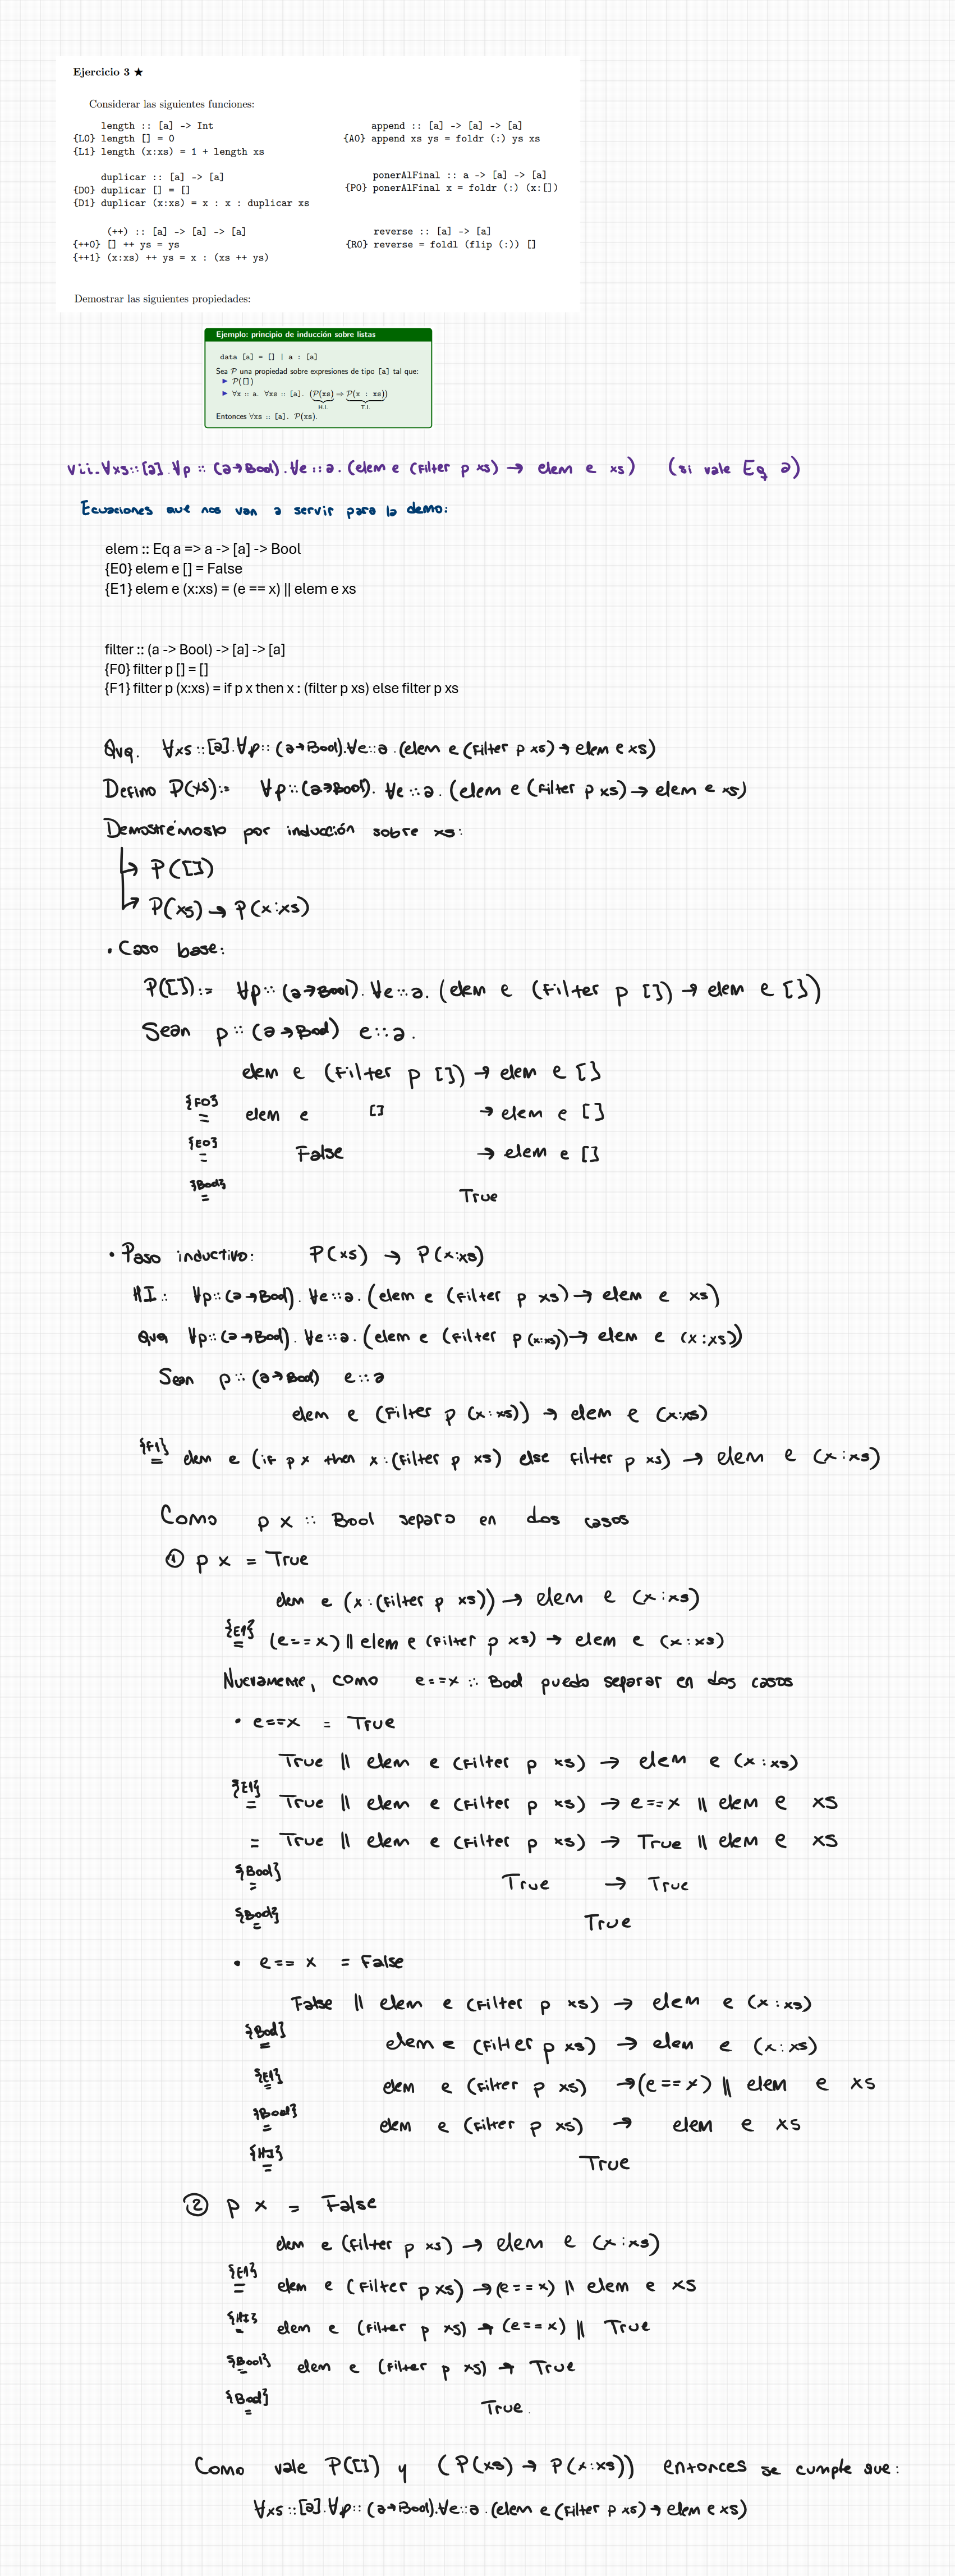 Ejercicio 3 ★
Considerar las siguientes funciones:
length :: [a] -> Int
{L0} length [] = 0
{L1} length (x:xs) = 1 + length xs
append :: [a] -> [a] -> [a]
{A0} append xs ys = foldr (:) ys xs
duplicar :: [a] -> [a]
{D0} duplicar [] = []
{D1} duplicar (x:xs) = x : x : duplicar xs
ponerAlFinal :: a -> [a] -> [a]
{P0} ponerAlFinal x = foldr (:) (x:[])
(++) :: [a] -> [a] -> [a]
{++0} [] ++ ys = ys
{++1} (x:xs) ++ ys = x : (xs ++ ys)
reverse :: [a] -> [a]
{R0} reverse = foldl (flip (:)) []
Demostrar las siguientes propiedades:
Ejemplo: principio de inducción sobre listas
data [a] = [] | a : [a]
Sea P una propiedad sobre expresiones de tipo [a] tal que:
▶ P([])
▶ ∀x :: a. ∀xs :: [a]. (P(xs) ⇒ P(x : xs))
H.I. T.I.
Entonces ∀xs :: [a]. P(xs).
vii. ∀xs::[a].∀p :: (a→Bool).∀e::a.(elem e (filter p xs) → elem e xs) (si vale Eq a)
Ecuaciones que nos van a servir para la demo:
elem :: Eq a => a -> [a] -> Bool
{E0} elem e [] = False
{E1} elem e (x:xs) = (e == x) || elem e xs
filter :: (a -> Bool) -> [a] -> [a]
{F0} filter p [] = []
{F1} filter p (x:xs) = if p x then x : (filter p xs) else filter p xs
Qvq. ∀xs::[a].∀p::(a→Bool).∀e::a.(elem e (filter p xs) → elem e xs)
Defino P(xs):= ∀p::(a→Bool). ∀e::a. (elem e (filter p xs) → elem e xs)
Demostrémoslo por inducción sobre xs:
↳ P([])
↳ P(xs) → P(x:xs)
• Caso base:
P([]):= ∀p::(a→Bool). ∀e::a. (elem e (filter p []) → elem e [])
Sean p::(a→Bool) e::a.
elem e (filter p []) → elem e []
{F0} = elem e [] → elem e []
{E0} = False → elem e []
{Bool} = True
• Paso inductivo: P(xs) → P(x:xs)
HI: ∀p::(a→Bool). ∀e::a. (elem e (filter p xs) → elem e xs)
Qvq ∀p::(a→Bool). ∀e::a. (elem e (filter p (x:xs)) → elem e (x:xs))
Sean p::(a→Bool) e::a
elem e (filter p (x:xs)) → elem e (x:xs)
{F1} = elem e (if p x then x:(filter p xs) else filter p xs) → elem e (x:xs)
Como p x :: Bool separo en dos casos
① p x = True
elem e (x:(filter p xs)) → elem e (x:xs)
{E1} = (e==x) || elem e (filter p xs) → elem e (x:xs)
Nuevamente, como e==x :: Bool puedo separar en dos casos
• e==x = True
True || elem e (filter p xs) → elem e (x:xs)
{E1} = True || elem e (filter p xs) → e==x || elem e xs
= True || elem e (filter p xs) → True || elem e xs
{Bool} = True → True
{Bool} = True
• e== x = False
False || elem e (filter p xs) → elem e (x:xs)
{Bool} = elem e (filter p xs) → elem e (x:xs)
{E1} = elem e (filter p xs) → (e==x) || elem e xs
{Bool} = elem e (filter p xs) → elem e xs
{HI} = True
② p x = False
elem e (filter p xs) → elem e (x:xs)
{E1} = elem e (filter p xs) → (e==x) || elem e xs
{HI} = elem e (filter p xs) → (e==x) || True
{Bool} = elem e (filter p xs) → True
{Bool} = True.
Como vale P([]) y (P(xs) → P(x:xs)) entonces se cumple que:
∀xs::[a].∀p::(a→Bool).∀e::a.(elem e (filter p xs) → elem e xs)